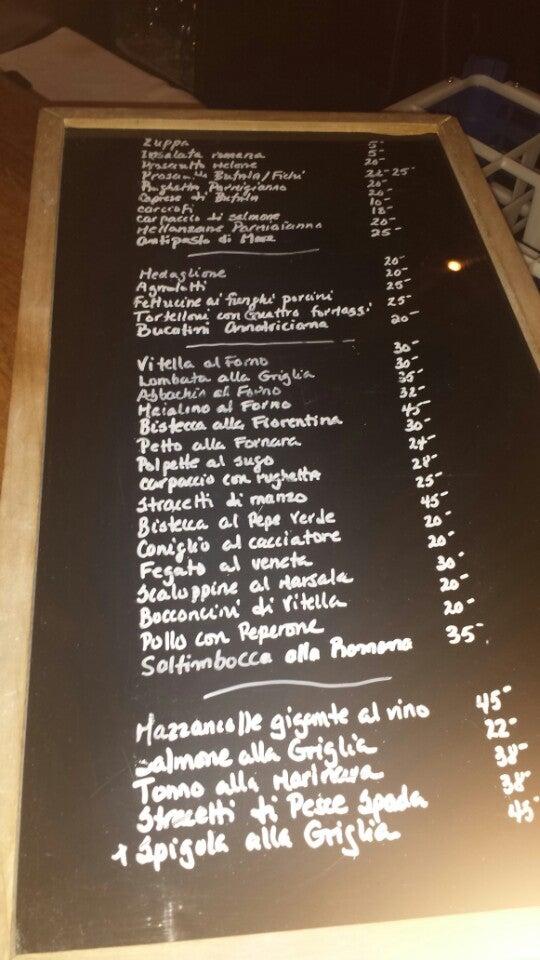 Zuppa 5-
Insalata romana 5-
Prosciutto melone 20-
Bufala/Fichi 22-25-
Rughetta Parmigianno 20-
Caprese di Bufala 20-
Carciofi 10-
Carpaccio di salmone 18-
Mellanzane Parmiaianno 20-
Antipasto di Mare 25-
Medaglione 20-
Agnolotti 20-
Fettucine ai funghi porcini 25-
Tortelloni con Quattro formaggi 25-
Bucatini Amatriciana 20-
Vitella al Forno 30-
Lombata alla Griglia 30-
Abbachio al Forno 35-
Maialino al Forno 32-
Bistecca alla Fiorentina 45-
Petto alla Fornara 30-
Polpette al sugo 24-
Carpaccio con rughetta 28-
Stracetti di manzo 25-
Bistecca al Pepe Verde 45-
Coniglio al cacciatore 20-
Fegato al veneta 20-
Scaluppine al Marsala 30-
Bocconcini di Vitella 20-
Pollo con Peperone 20-
Saltimbocca alla Romana 35-
Mazzancolle gigante al vino 45-
Salmone alla Griglia 22-
Tonno alla Marinara 38-
Stracetti di Pesce Spada 38-
Spigola alla Griglia 45-